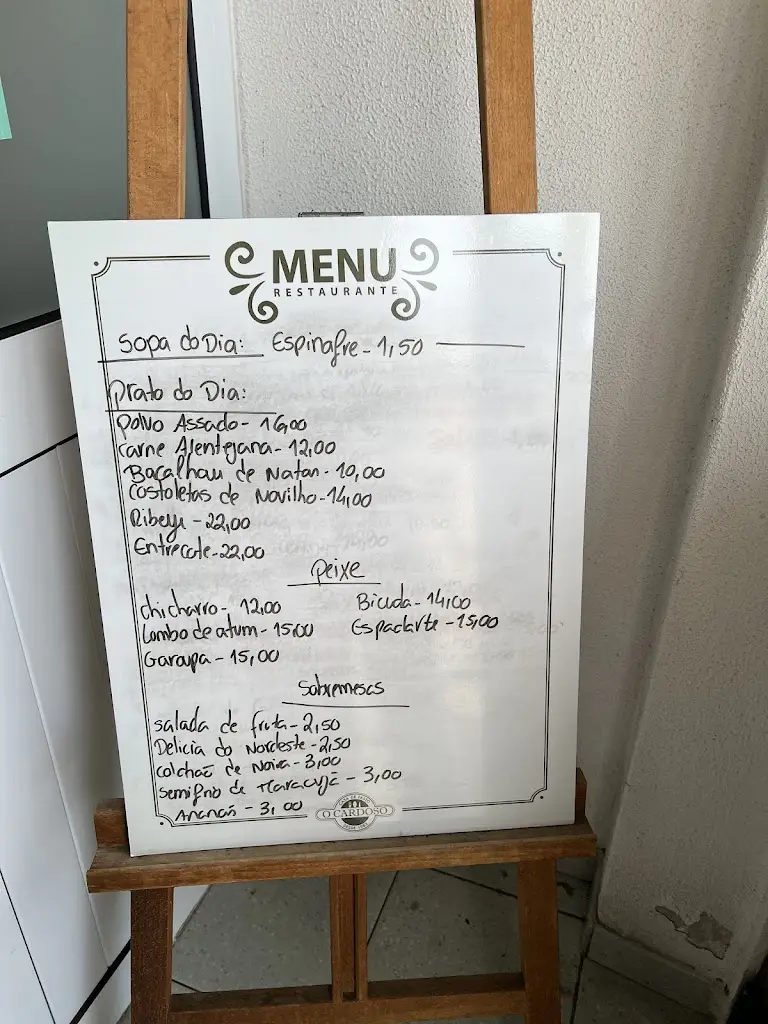 MENU
RESTAURANTE
Sopa do Dia: Espinafre - 1,50
Prato do Dia:
Polvo Assado - 16,00
Carne Alentejana - 12,00
Bacalhau de Natas - 10,00
Costoletas de Novilho - 14,00
Ribeye - 22,00
Entrecote - 22,00
Peixe
Chicharro - 12,00 Bicuda - 14,00
Lombo de atum - 15,00 Espadarte - 15,00
Garoupa - 15,00
Sobremesas
Salada de fruta - 2,50
Delicia do Nordeste - 2,50
Colchão de Noiva - 3,00
Semifrio de Maracujá - 3,00
Ananás - 3,00
O CARDOSO